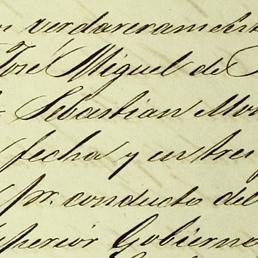 verdaderamente
José Miguel de
Sebastian Mo
fecha y en tres
pr. conducto del
uperior Gobierno